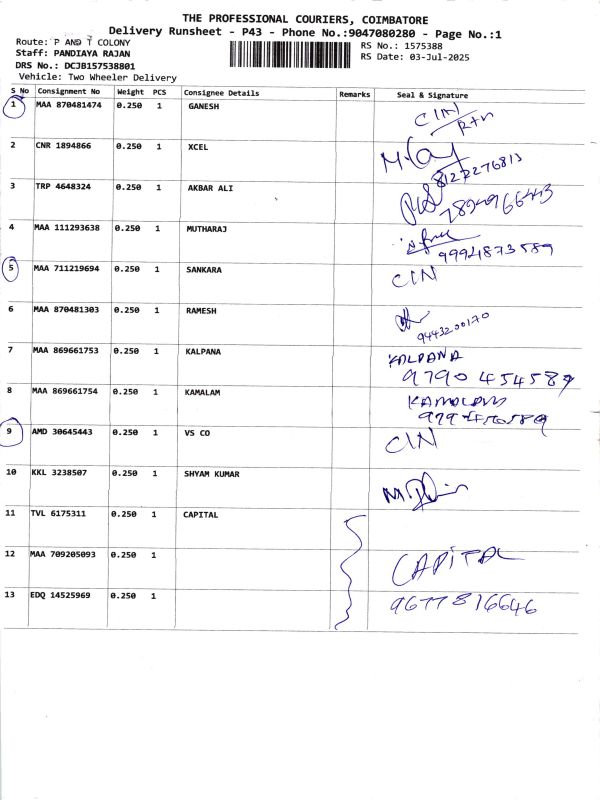 THE PROFESSIONAL COURIERS, COIMBATORE
Delivery Runsheet - P43 - Phone No.:9047080280 - Page No.:1
Route: P AND T COLONY
RS No.: 1575388
Staff: PANDIAYA RAJAN
RS Date: 03-Jul-2025
DRS No.: DCJB157538801
Vehicle: Two Wheeler Delivery
S No Consignment No Weight PCS Consignee Details Remarks Seal & Signature
1 MAA 870481474 0.250 1 GANESH CIN
Rtn
2 CNR 1894866 0.250 1 XCEL
8122276813
3 TRP 4648324 0.250 1 AKBAR ALI
7894966443
4 MAA 111293638 0.250 1 MUTHARAJ
9994873589
5 MAA 711219694 0.250 1 SANKARA CIN
6 MAA 870481303 0.250 1 RAMESH
9443200170
7 MAA 869661753 0.250 1 KALPANA KALPANA
9790 454589
8 MAA 869661754 0.250 1 KAMALAM KAMALAM
9 AMD 30645443 0.250 1 VS CO CIN
10 KKL 3238507 0.250 1 SHYAM KUMAR
11 TVL 6175311 0.250 1 CAPITAL
12 MAA 709205093 0.250 1 CAPITAL
13 EDQ 14525969 0.250 1 9677816646